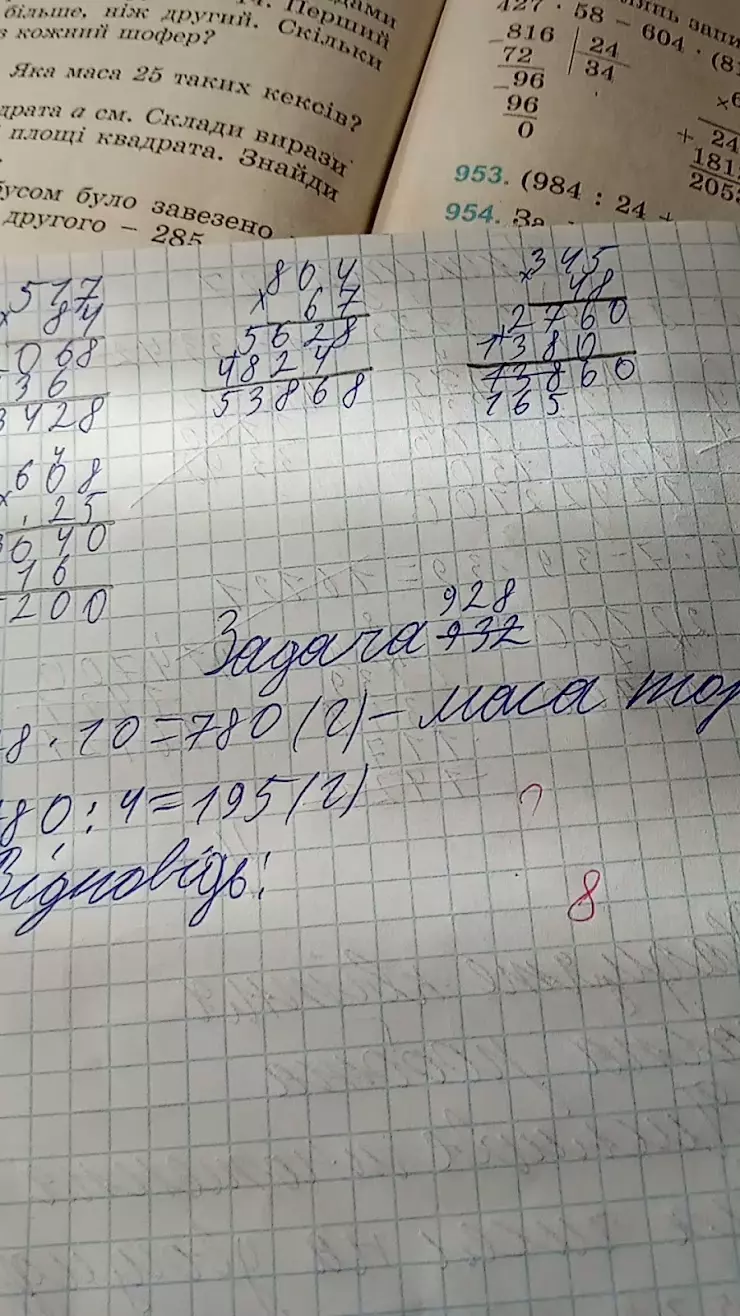 більше, ніж другий. Скільки
кожний шофер?
Яка маса 25 таких кексів?
драта а см. Склади вирази
площі квадрата. Знайди
бусом було завезено
другого – 285
427 · 58 – 604 · (8
816 24
72 34
96
96
0
24
181
205
953. (984 : 24 +
954. За
517
× 84
068
36
3428
804
× 67
5628
4824
53868
345
× 48
2760
1380
13860
165
608
25
3040
16
200
928
Задача 932
8 · 10 = 780 (г) – маса тор
80 : 4 = 195 (г)
Відповідь:
8